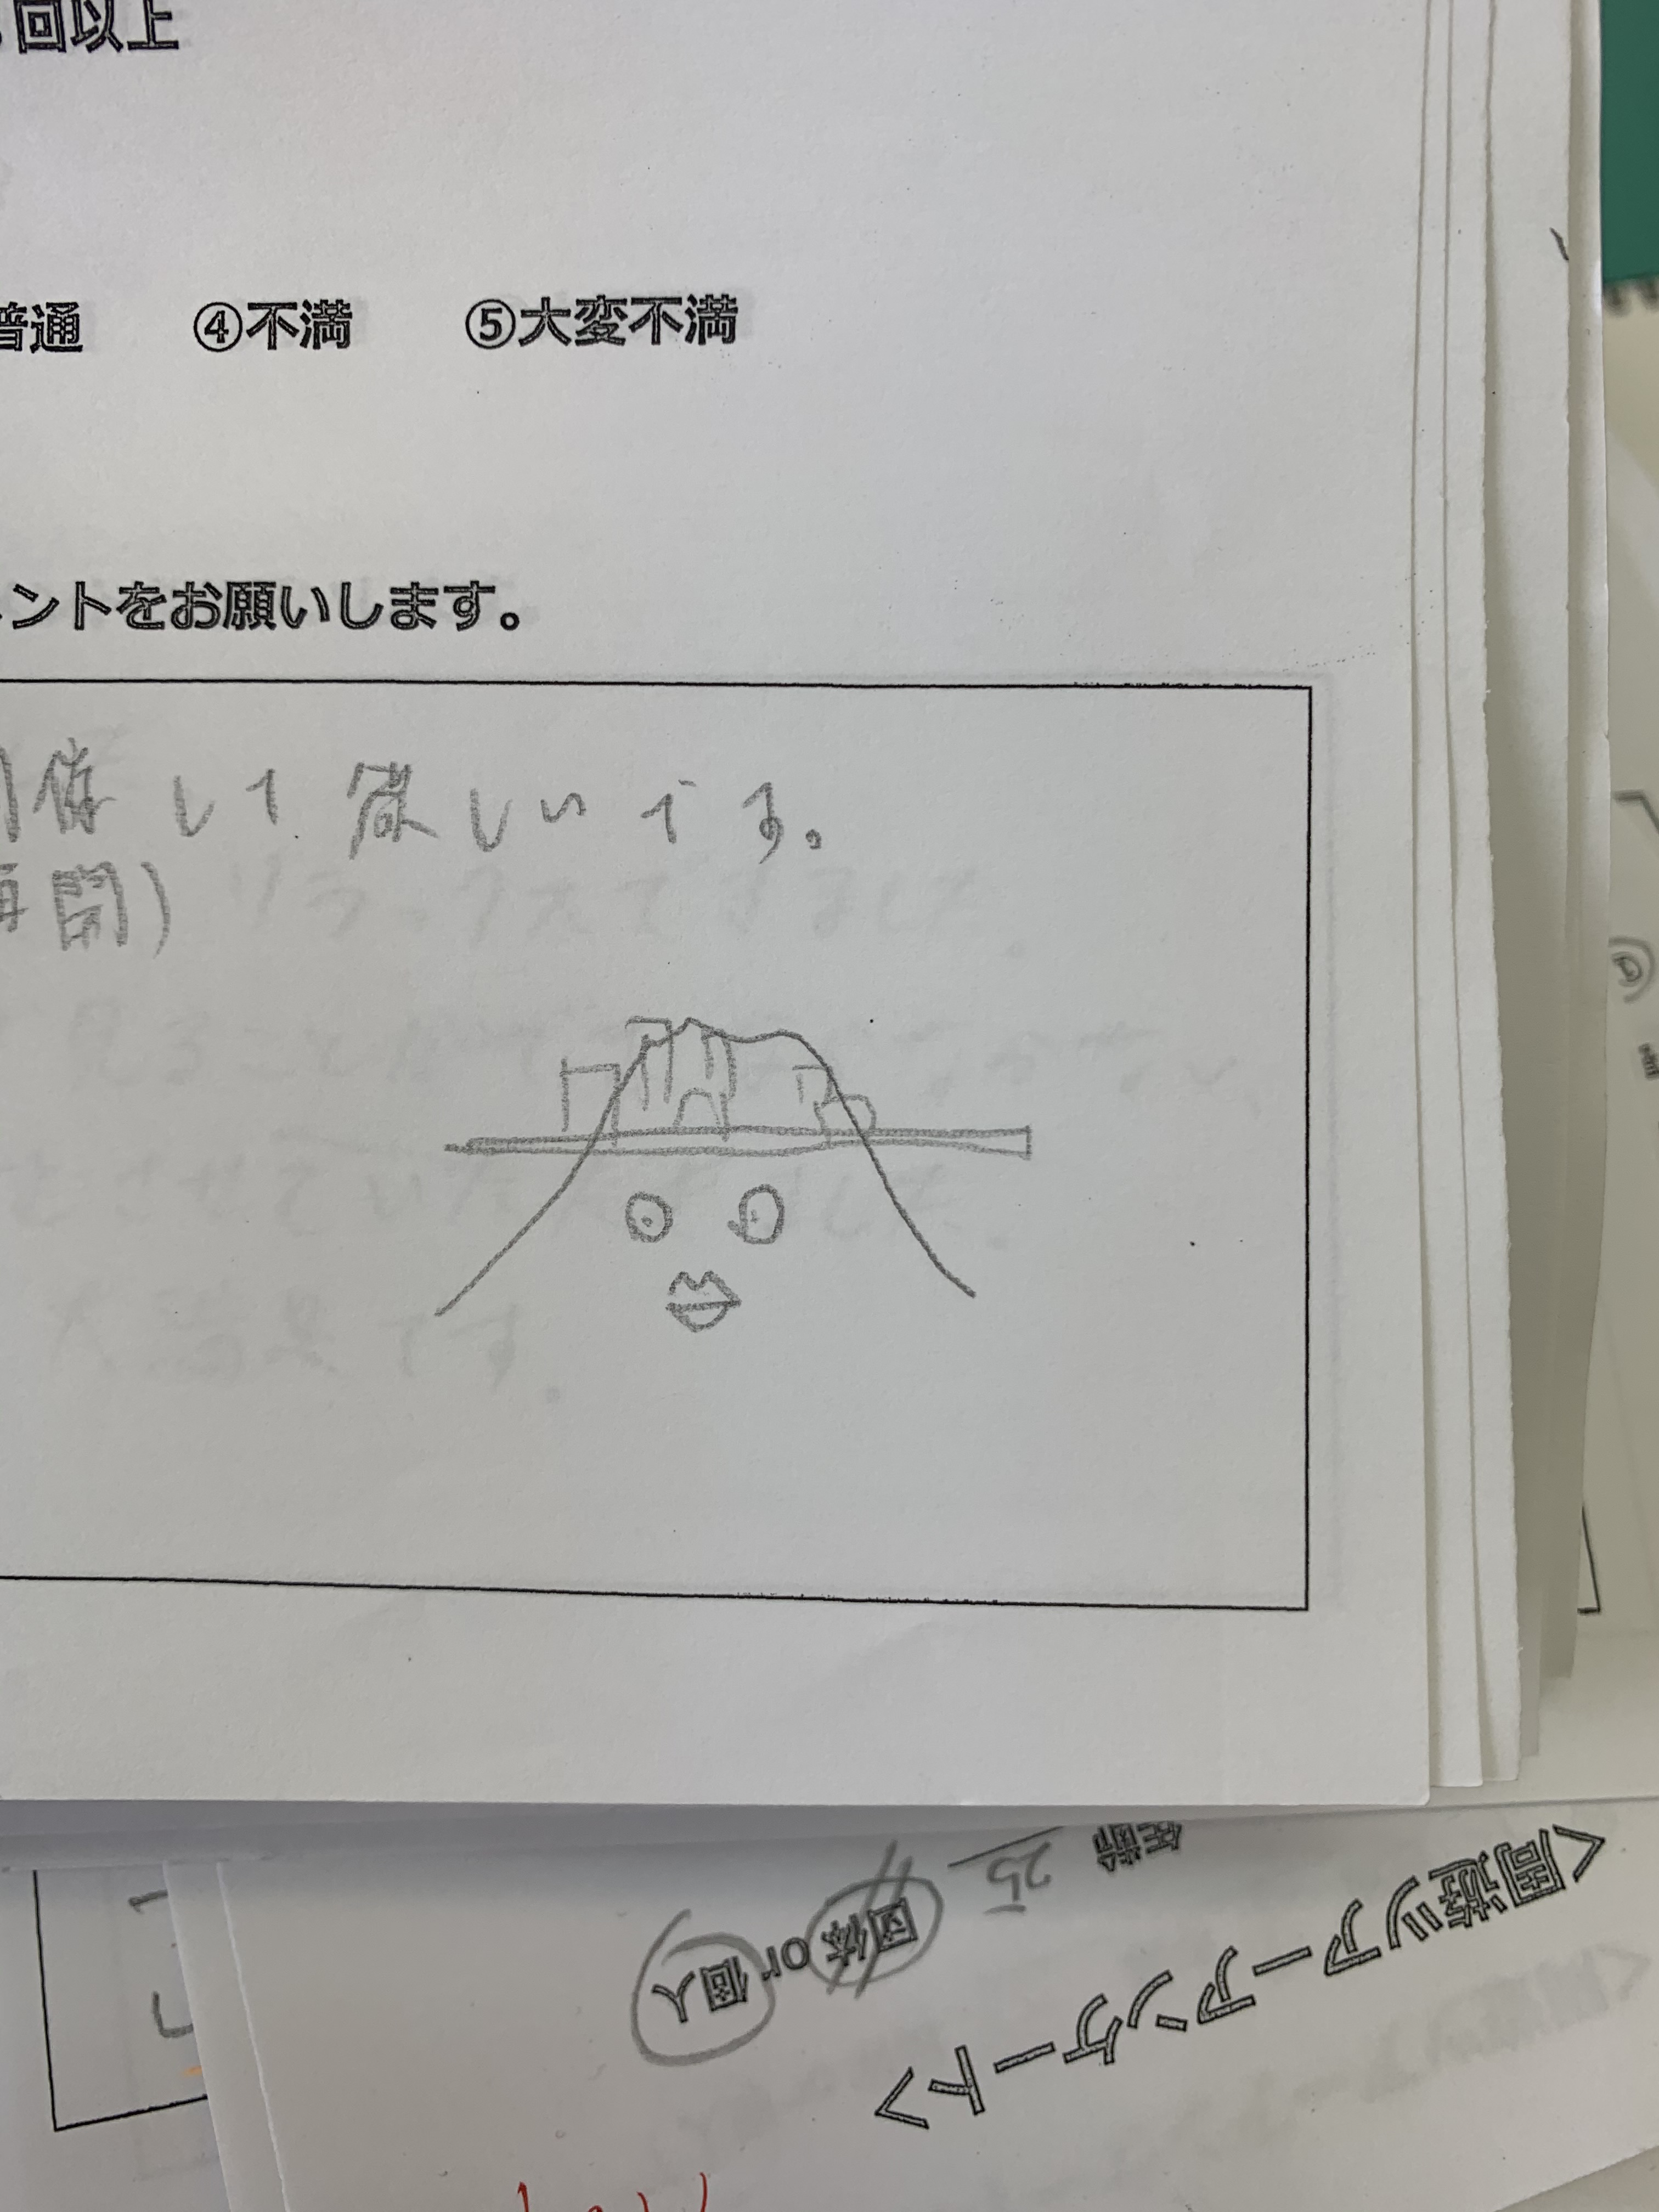 回以上
普通 ④不満 ⑤大変不満
ントをお願いします。
催して欲しいです。
再開)
年齢 25
団体 or 個人
<周遊ツアーアンケート>